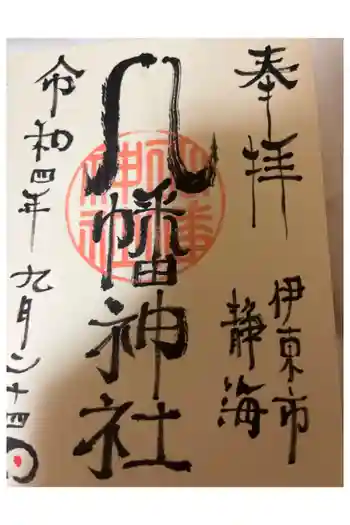 奉拝
伊東市
静海
八幡神社
八幡
神社
令和四年九月二十四日